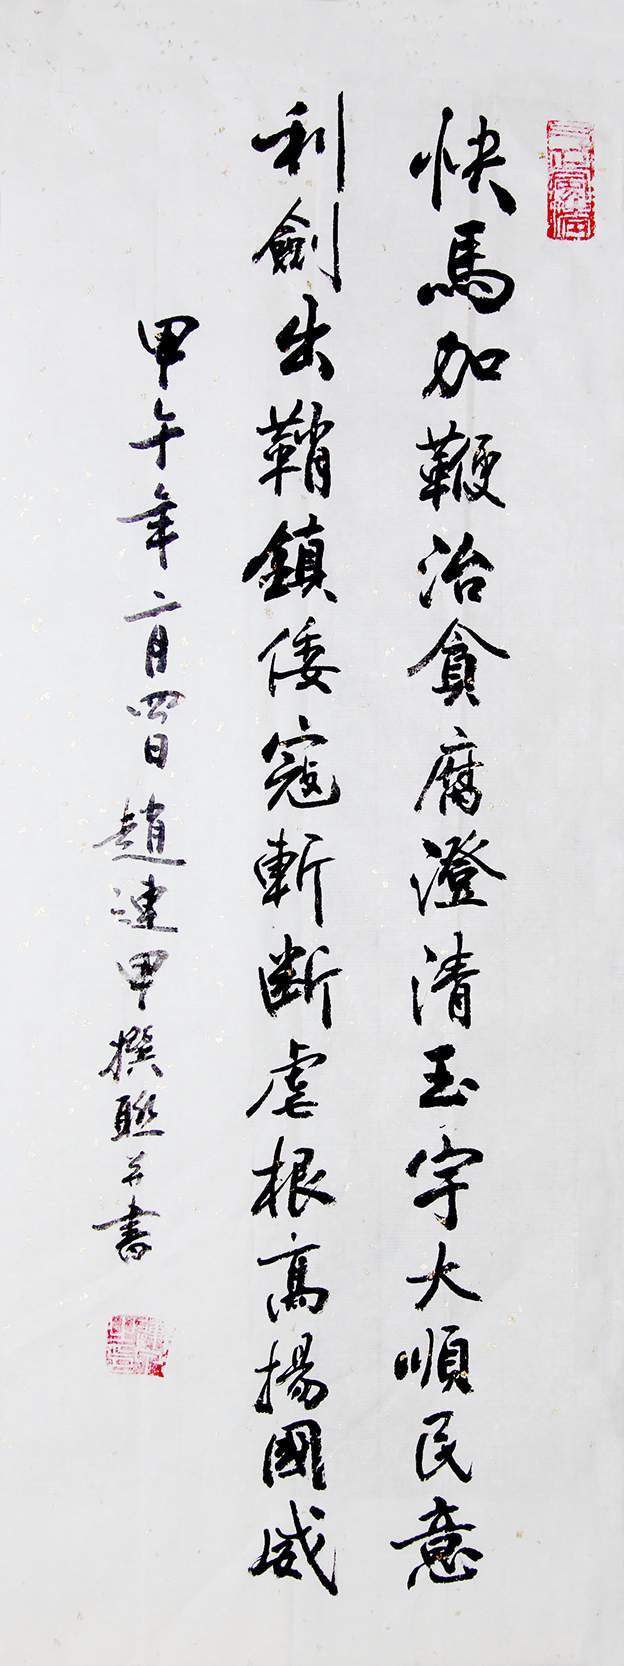 快馬加鞭治貪腐澄清玉宇大順民意
利劍出鞘鎮倭寇斬斷虐根高揚國威
甲午年二月四日趙連甲撰聯並書